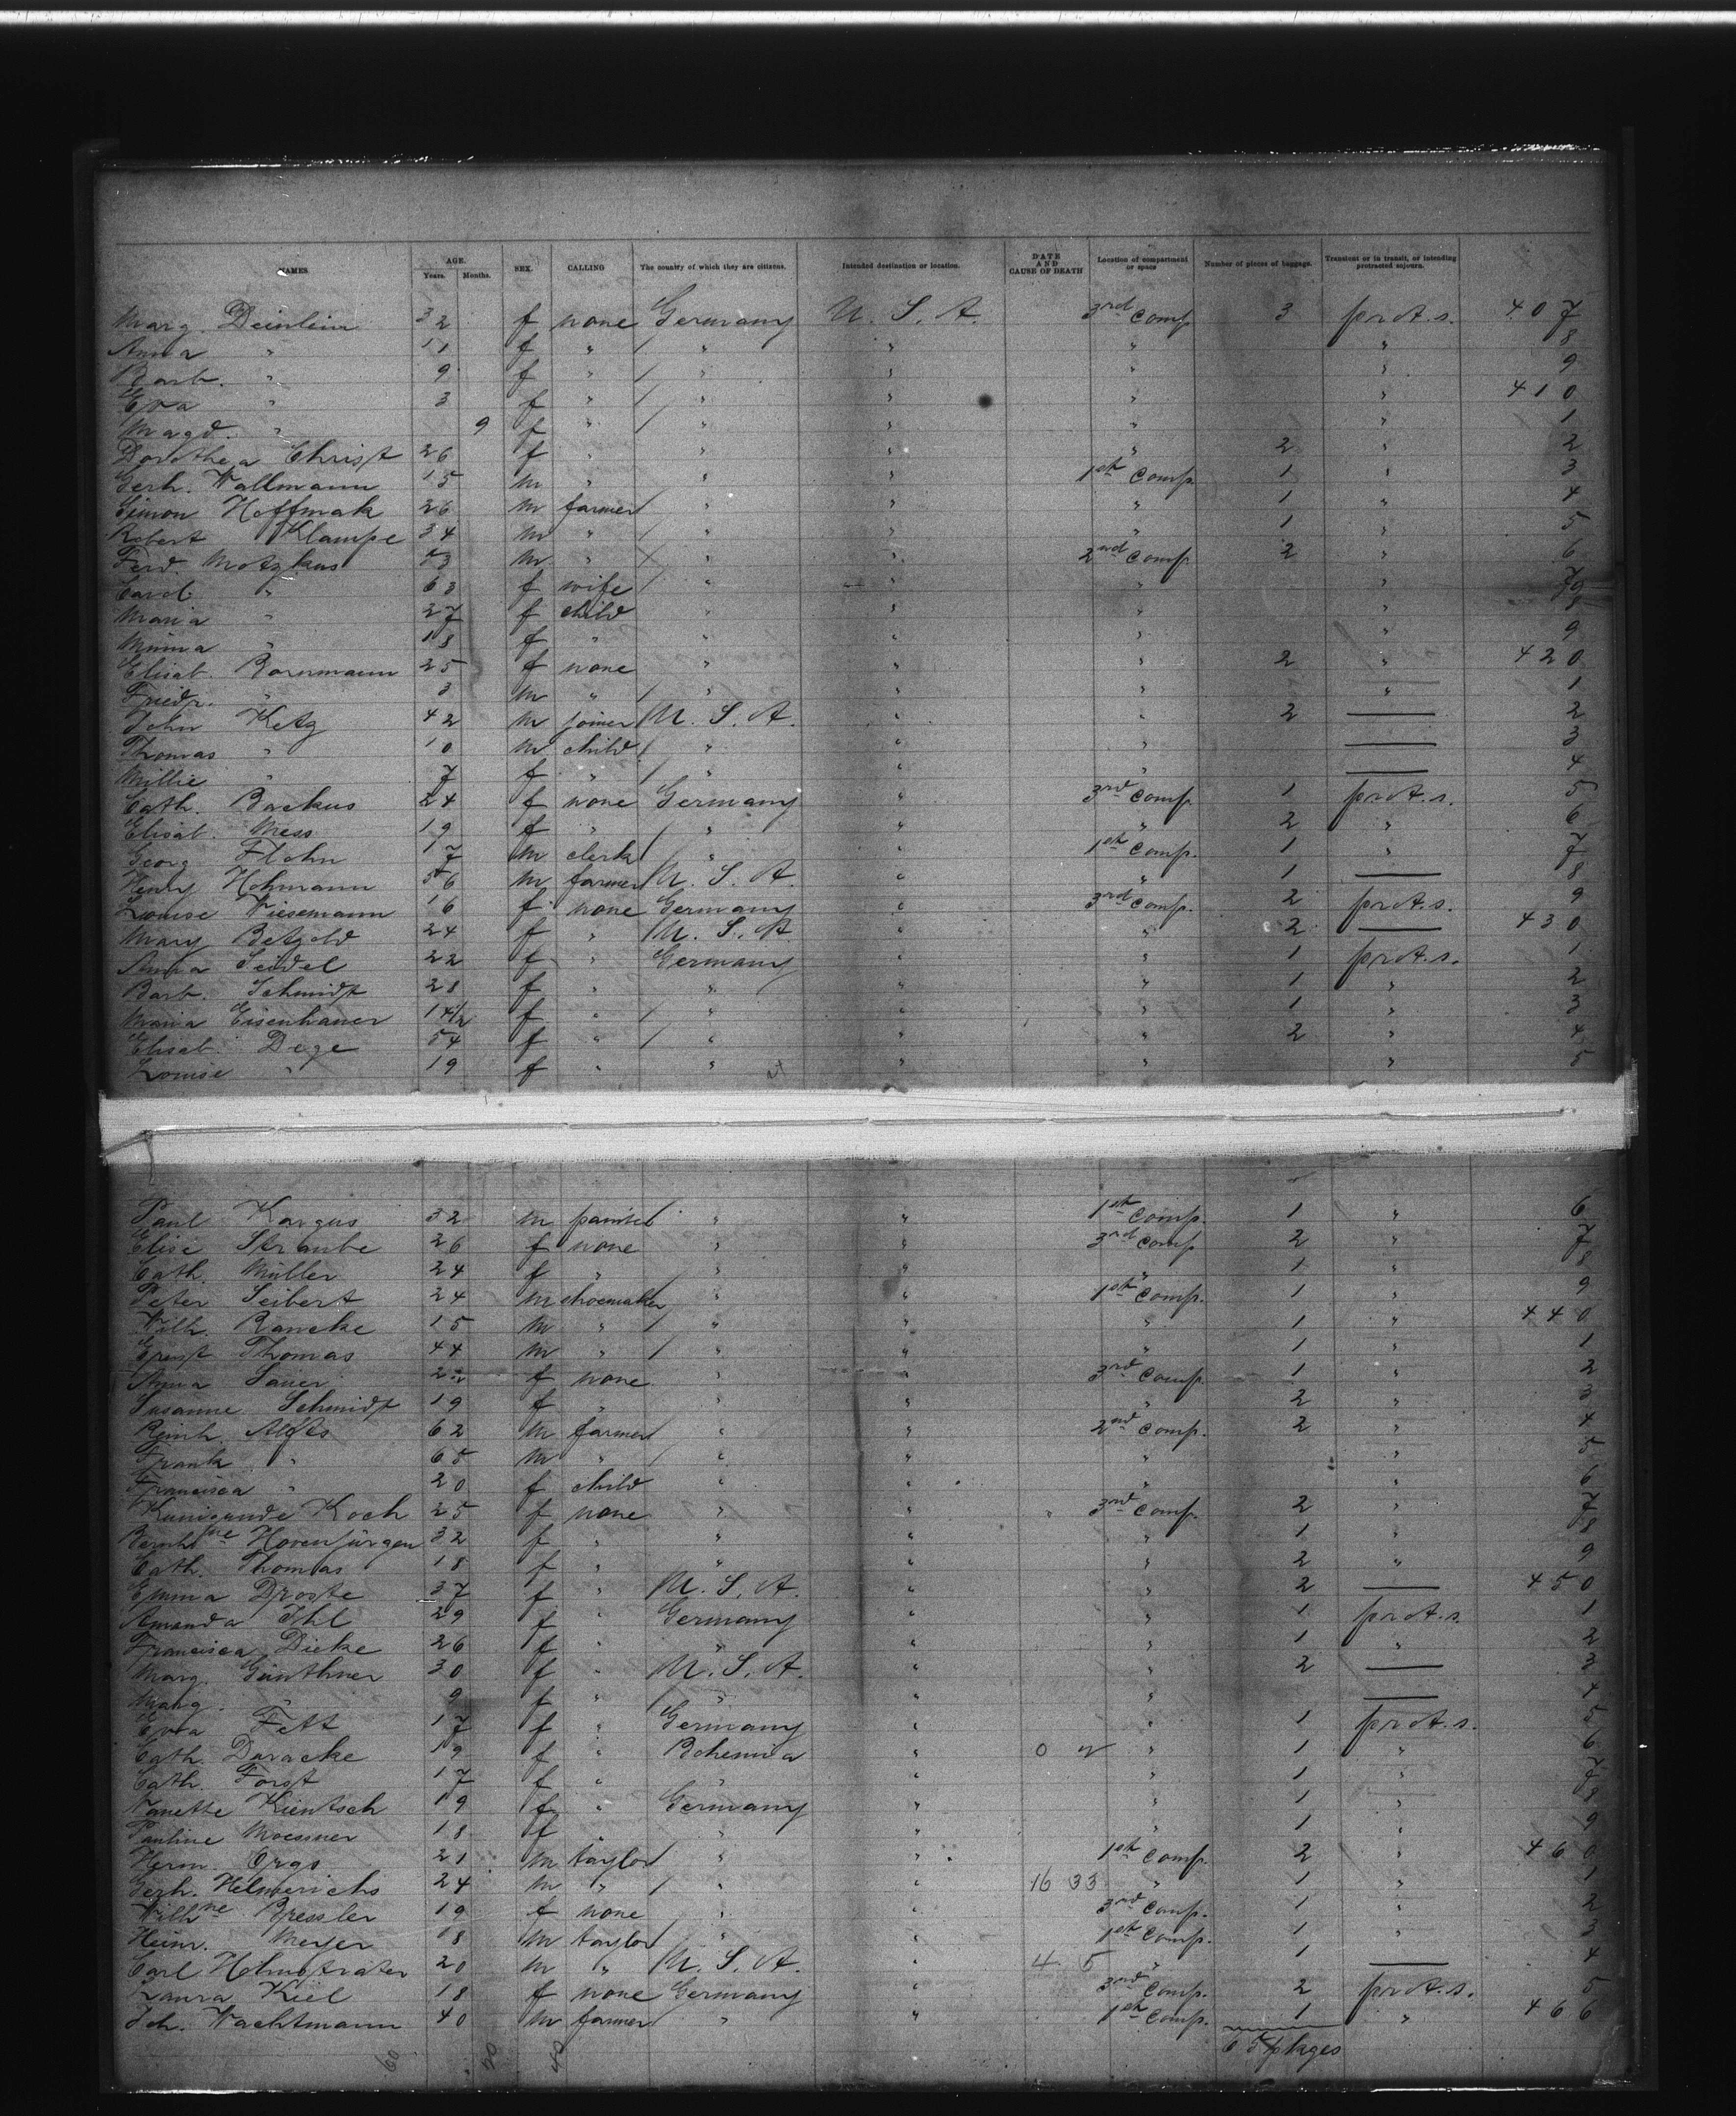 NAMES AGE. Years. Months. SEX. CALLING The country of which they are citizens. Intended destination or location. DATE AND CAUSE OF DEATH Location of compartment or space Number of pieces of baggage. Transient or in transit, or intending protracted sojourn.
Marg. Deinlein 32 f none Germany U. S. A. 3rd Comp. 3 prot. s. 407
Anna " 11 f " / " " " " 8
Barb. " 9 f " / " " " " 9
Eva " 3 f " / " " " " 410
Magd. " 9 f " / " " " " 1
Dorothea Christ 26 f " " " " 2 " 2
Gerh. Wallmann 15 m " " " 1st Comp. 1 " 3
Simon Hoffmak 26 m farmer / " " " 1 " 4
Robert Klampe 34 m " / " " " 1 " 5
Ferd. Motzkus m " " " 2nd Comp. 2 " 6
Carol. " 63 f wife / " " " "
Maria " 27 f child " " " " 8
Minna " 18 f " " " " " 9
Elisab. Bornmann 25 f none " " " 2 " 420
Friedr. " 3 m " / " " " " 1
John Ketz 42 m joiner U. S. A. " " 2 — 2
Thomas " 10 m child / " " " — 3
Millie " 7 f " / " " " — 4
Cath. Backus 24 f none Germany " 3rd Comp. 1 prot. s. 5
Elisab. Mess 19 f " / " " " 2 " 6
Georg Flohn 17 m clerk / " " 1st Comp. 1 " 7
Henry Hohmann 56 m farmer U. S. A. " " 1 — 8
Louise Wiesemann 16 f none Germany " 3rd Comp. 2 prot. s. 9
Mary Betzold 24 f " U. S. A. " " 2 — 430
Anna Seidel 22 f " Germany " " 1 prot. s. 1
Barb. Schmidt 28 f " " " " 1 " 2
Maria Eisenhauer 14 1/2 f " / " " " 1 " 3
Elisab. Dege 54 f " / " " " 2 " 4
Louise " 19 f " " " " " 5
Paul Kargus 32 m painter " " 1st Comp. 1 " 6
Elise Straube 26 f none " " 3rd Comp 2 " 7
Cath. Müller 24 f " / " " " 1 " 8
Peter Seibert 24 m shoemaker " " 1st Comp. 1 " 9
Wilh. Rancke 15 m " / " " " 1 " 440
Ernst Thomas 44 m " / " " " 1 " 1
Anna Sauer f none " " 3rd Comp. 1 " 2
Susanne Schmidt 19 f " " " " 2 " 3
Reinh. Alfts 62 m farmer / " " 2nd Comp. 2 " 4
Frank " 65 m " / " " " " 5
Francisca " 20 f child " " " " 6
Kunigunde Koch 25 f none " " 3rd Comp. 2 " 7
Bernh.ne Hovenjürgen 32 f " " " " 1 " 8
Cath. Thomas 18 f " " " " 2 " 9
Emma Droste 37 f " U. S. A. " " 2 — 450
Amanda Ihl 29 f " Germany " " 1 prot. s. 1
Francisca Dicke 26 f " " " " 1 " 2
Marg. Günthner 30 f " U. S. A. " " 2 — 3
Marg. " 9 f " / " " " — 4
Eva Fett 17 f " Germany " " 1 prot. s. 5
Cath. Daracke 19 f " Bohemia " " 1 " 6
Cath. Forst 17 f " " " " 1 " 7
Nanette Kientsch 19 f " Germany " " 1 " 8
Pauline Moessner 18 f " " " " 1 " 9
Herm. Orgs 21 m taylor " " 1st Comp. 2 " 460
Gerh. Helmerichs 24 m " / " " 16 33 " 1 " 1
Wilh.ne Bressler 19 f none " " 3rd Comp. 1 " 2
Heinr. Meyer 18 m taylor " " 1st Comp. 1 " 3
Carl Hohnsträter 20 m " U. S. A. " 4 5 " 1 — 4
Laura Kiel 18 f none Germany " 3rd Comp. 2 prot. s. 5
Joh. Wachtmann 40 m farmer " " 1st Comp. 1 " 466
pkges
60 20 40